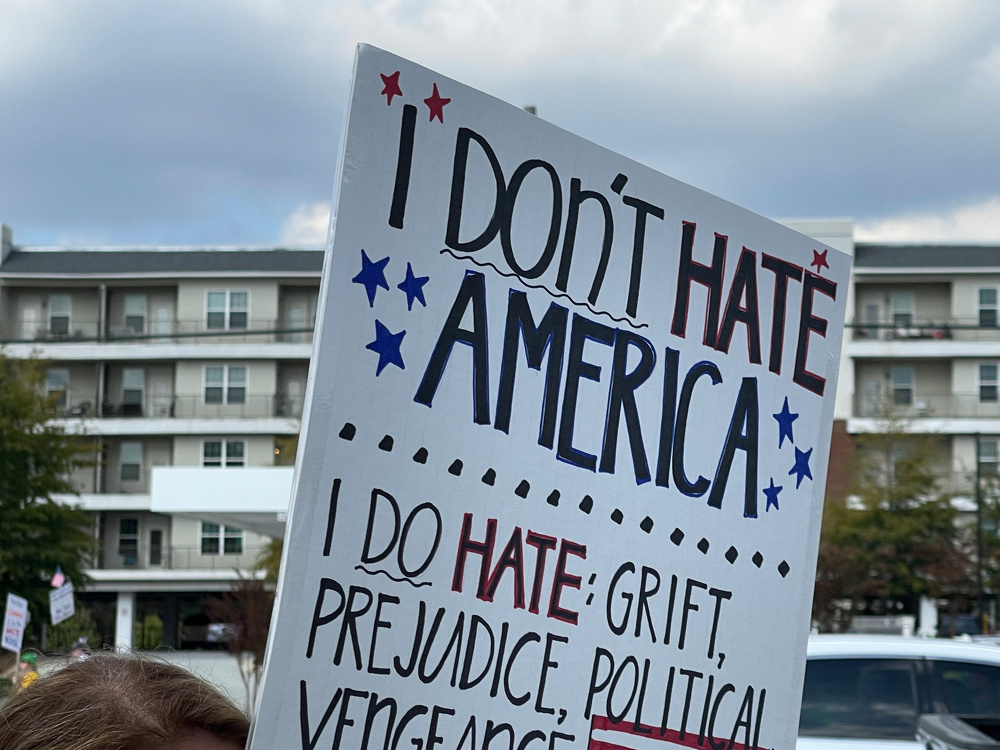 I DOn'T HATE
AMERICA
I DO HATE: GRIFT,
PREJUDICE, POLITICAL
VENGEANCE